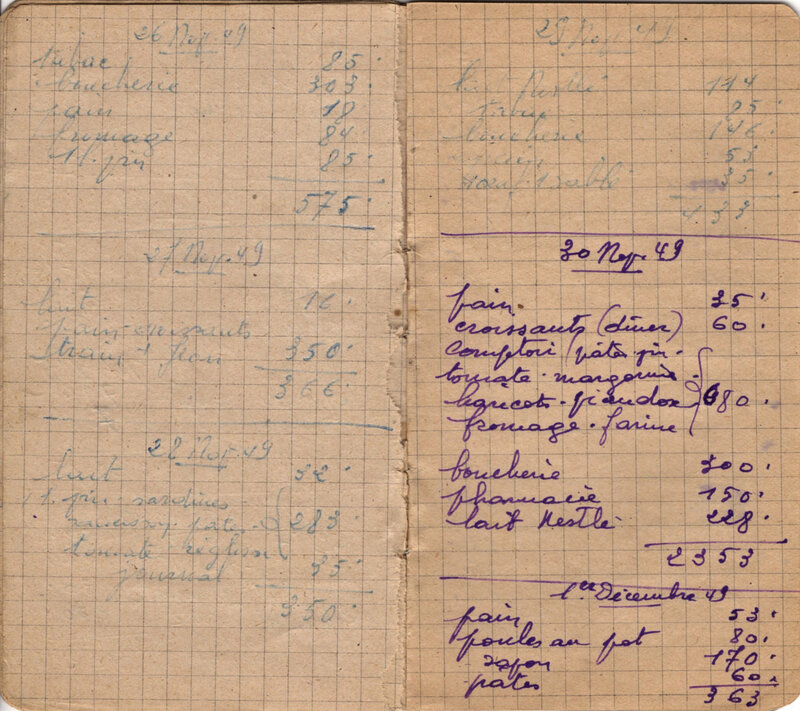 26 Nov. 49
tabac 85.
boucherie 303.
pain 18
fromage 84.
1 l. pin 85.
575.
27 Nov. 49
lait 16.
pain croissants
train Jean 350.
366.
28 Nov. 49
lait 32.
1 l. pin. sardines
pates 283.
tomate réglisse
journal 35.
350.
29 Nov. 49.
114
95.
boucherie 146.
55
35.
433
30 Nov. 49
pain. 35.
croissants (diner) 60.
comptoir / pâtes pin.
tomate. margarine.
haricots. 680.
fromage. farine
boucherie 300.
pharmacie 150.
lait Nestlé 228.
2353
1er Décembre 49
pain 53.
poules au pot 80.
savon 170.
pâtes 60.
363